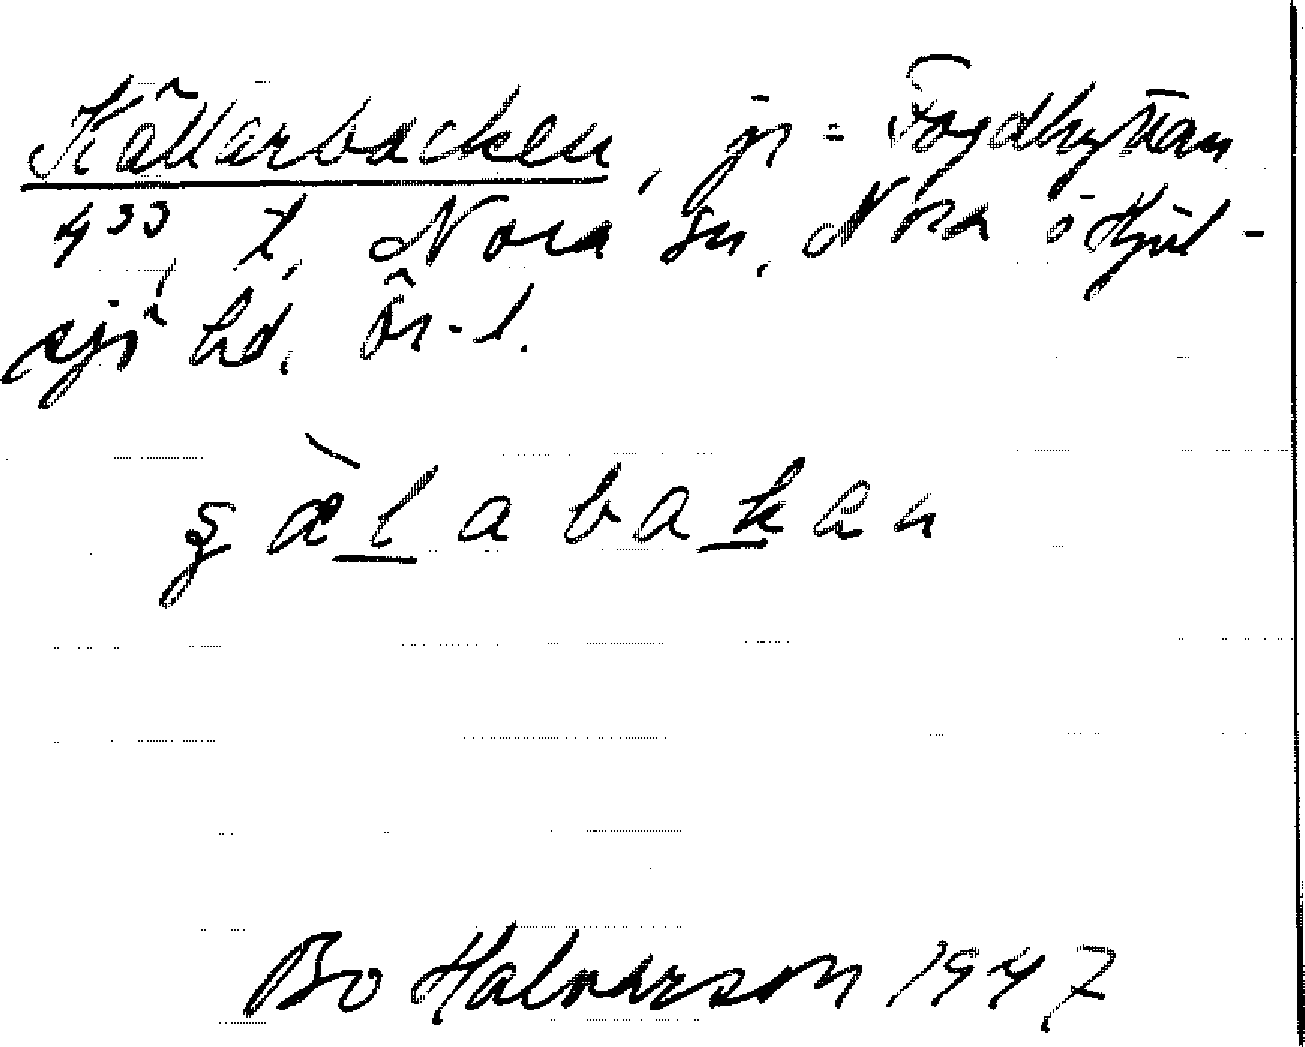 Källarbacken, jr = Fogdhyttan
4³³, t. Nora sn, Nora o Hjul-
sjö hd. Ör-l.
bakan
Bo Halvarson 1947